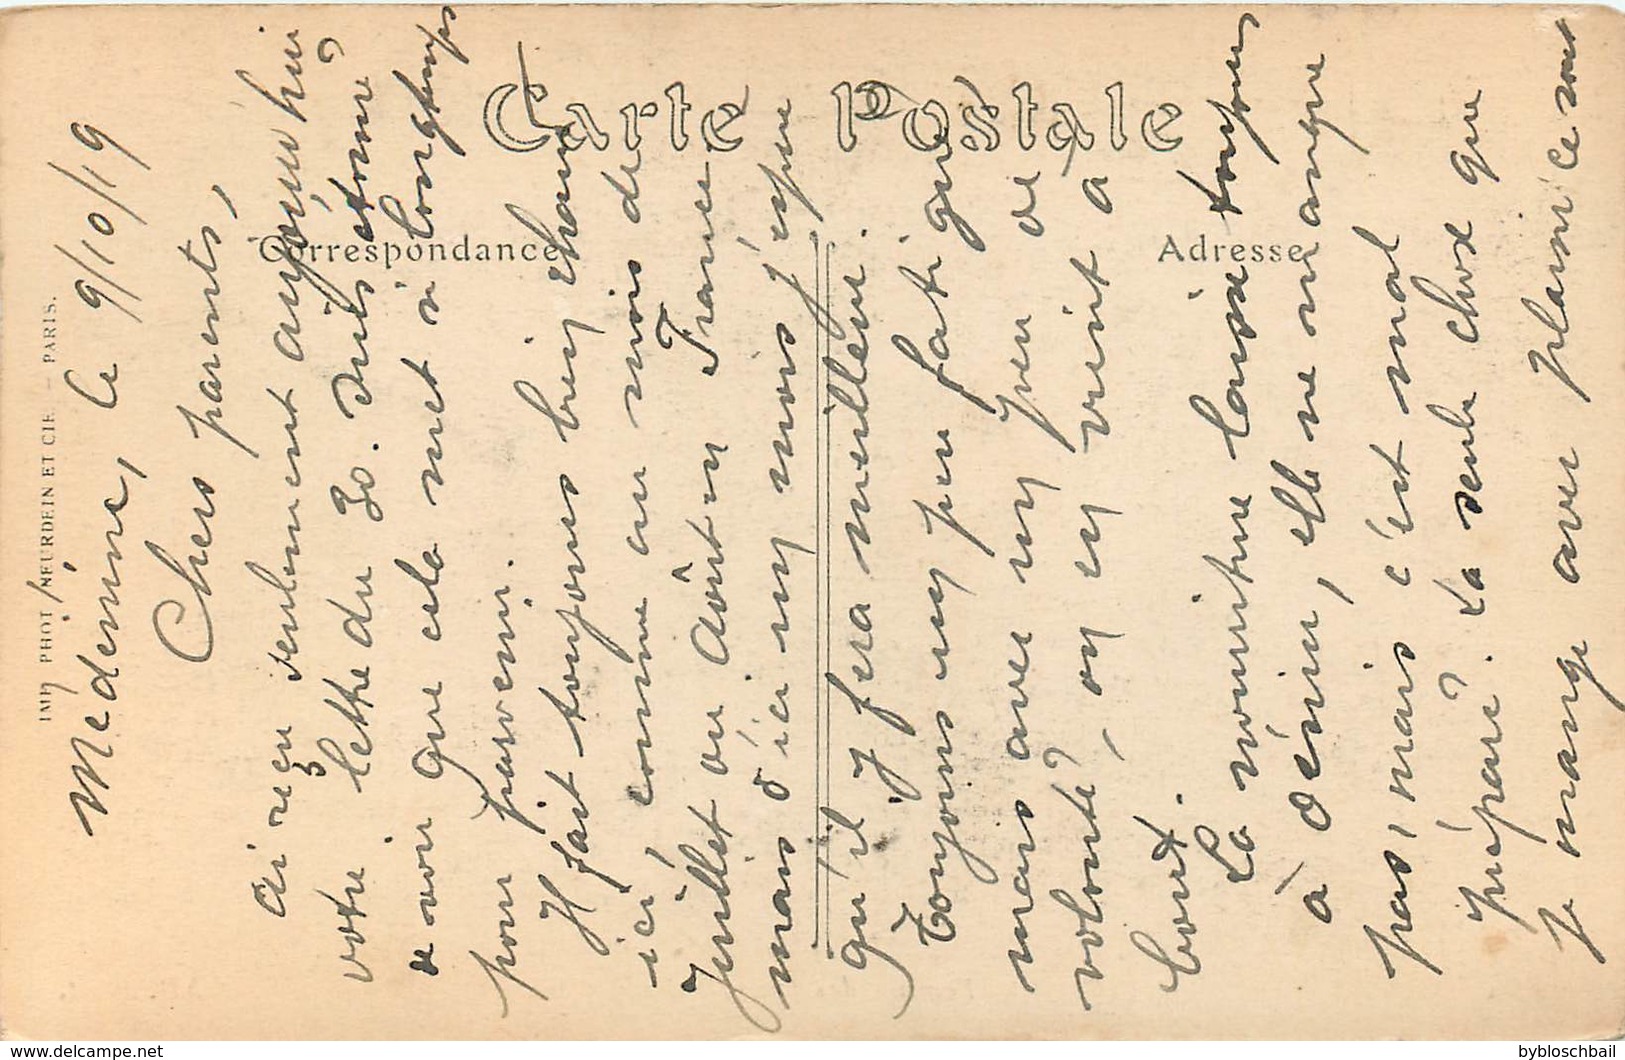 Carte Postale
Correspondance
Adresse
IMP. PHOT. NEURDEIN ET CIE. — PARIS.
Médenine, le 9/10/19
Chers parents,
ai reçu seulement aujourd'hui
votre lettre du 30. Suis étonné
de voir que cela met si longtemps
pour parvenir.
Il fait toujours bien chaud
ici, comme au mois de
Juillet ou Août en France
mais d'ici un mois j'espère
qu'il y fera meilleur.
Toujours un peu fatigué
mais avec un peu de
volonté, on en vient à
bout.
La nourriture laisse toujours
à désirer, elle ne manque
pas, mais c'est mal
préparé. La seule chose que
je mange avec plaisir ce sont
www.delcampe.net
bybloschbail